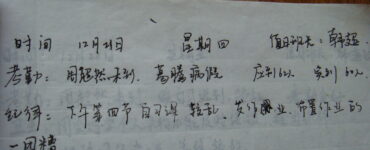 时间 12月21日 星期四 值日班长:韩超
考勤:周超然未到.葛腾病假 应到62人 实到60人
纪律:下午第四节自习课 较乱、发作业、布置作业时
一团糟